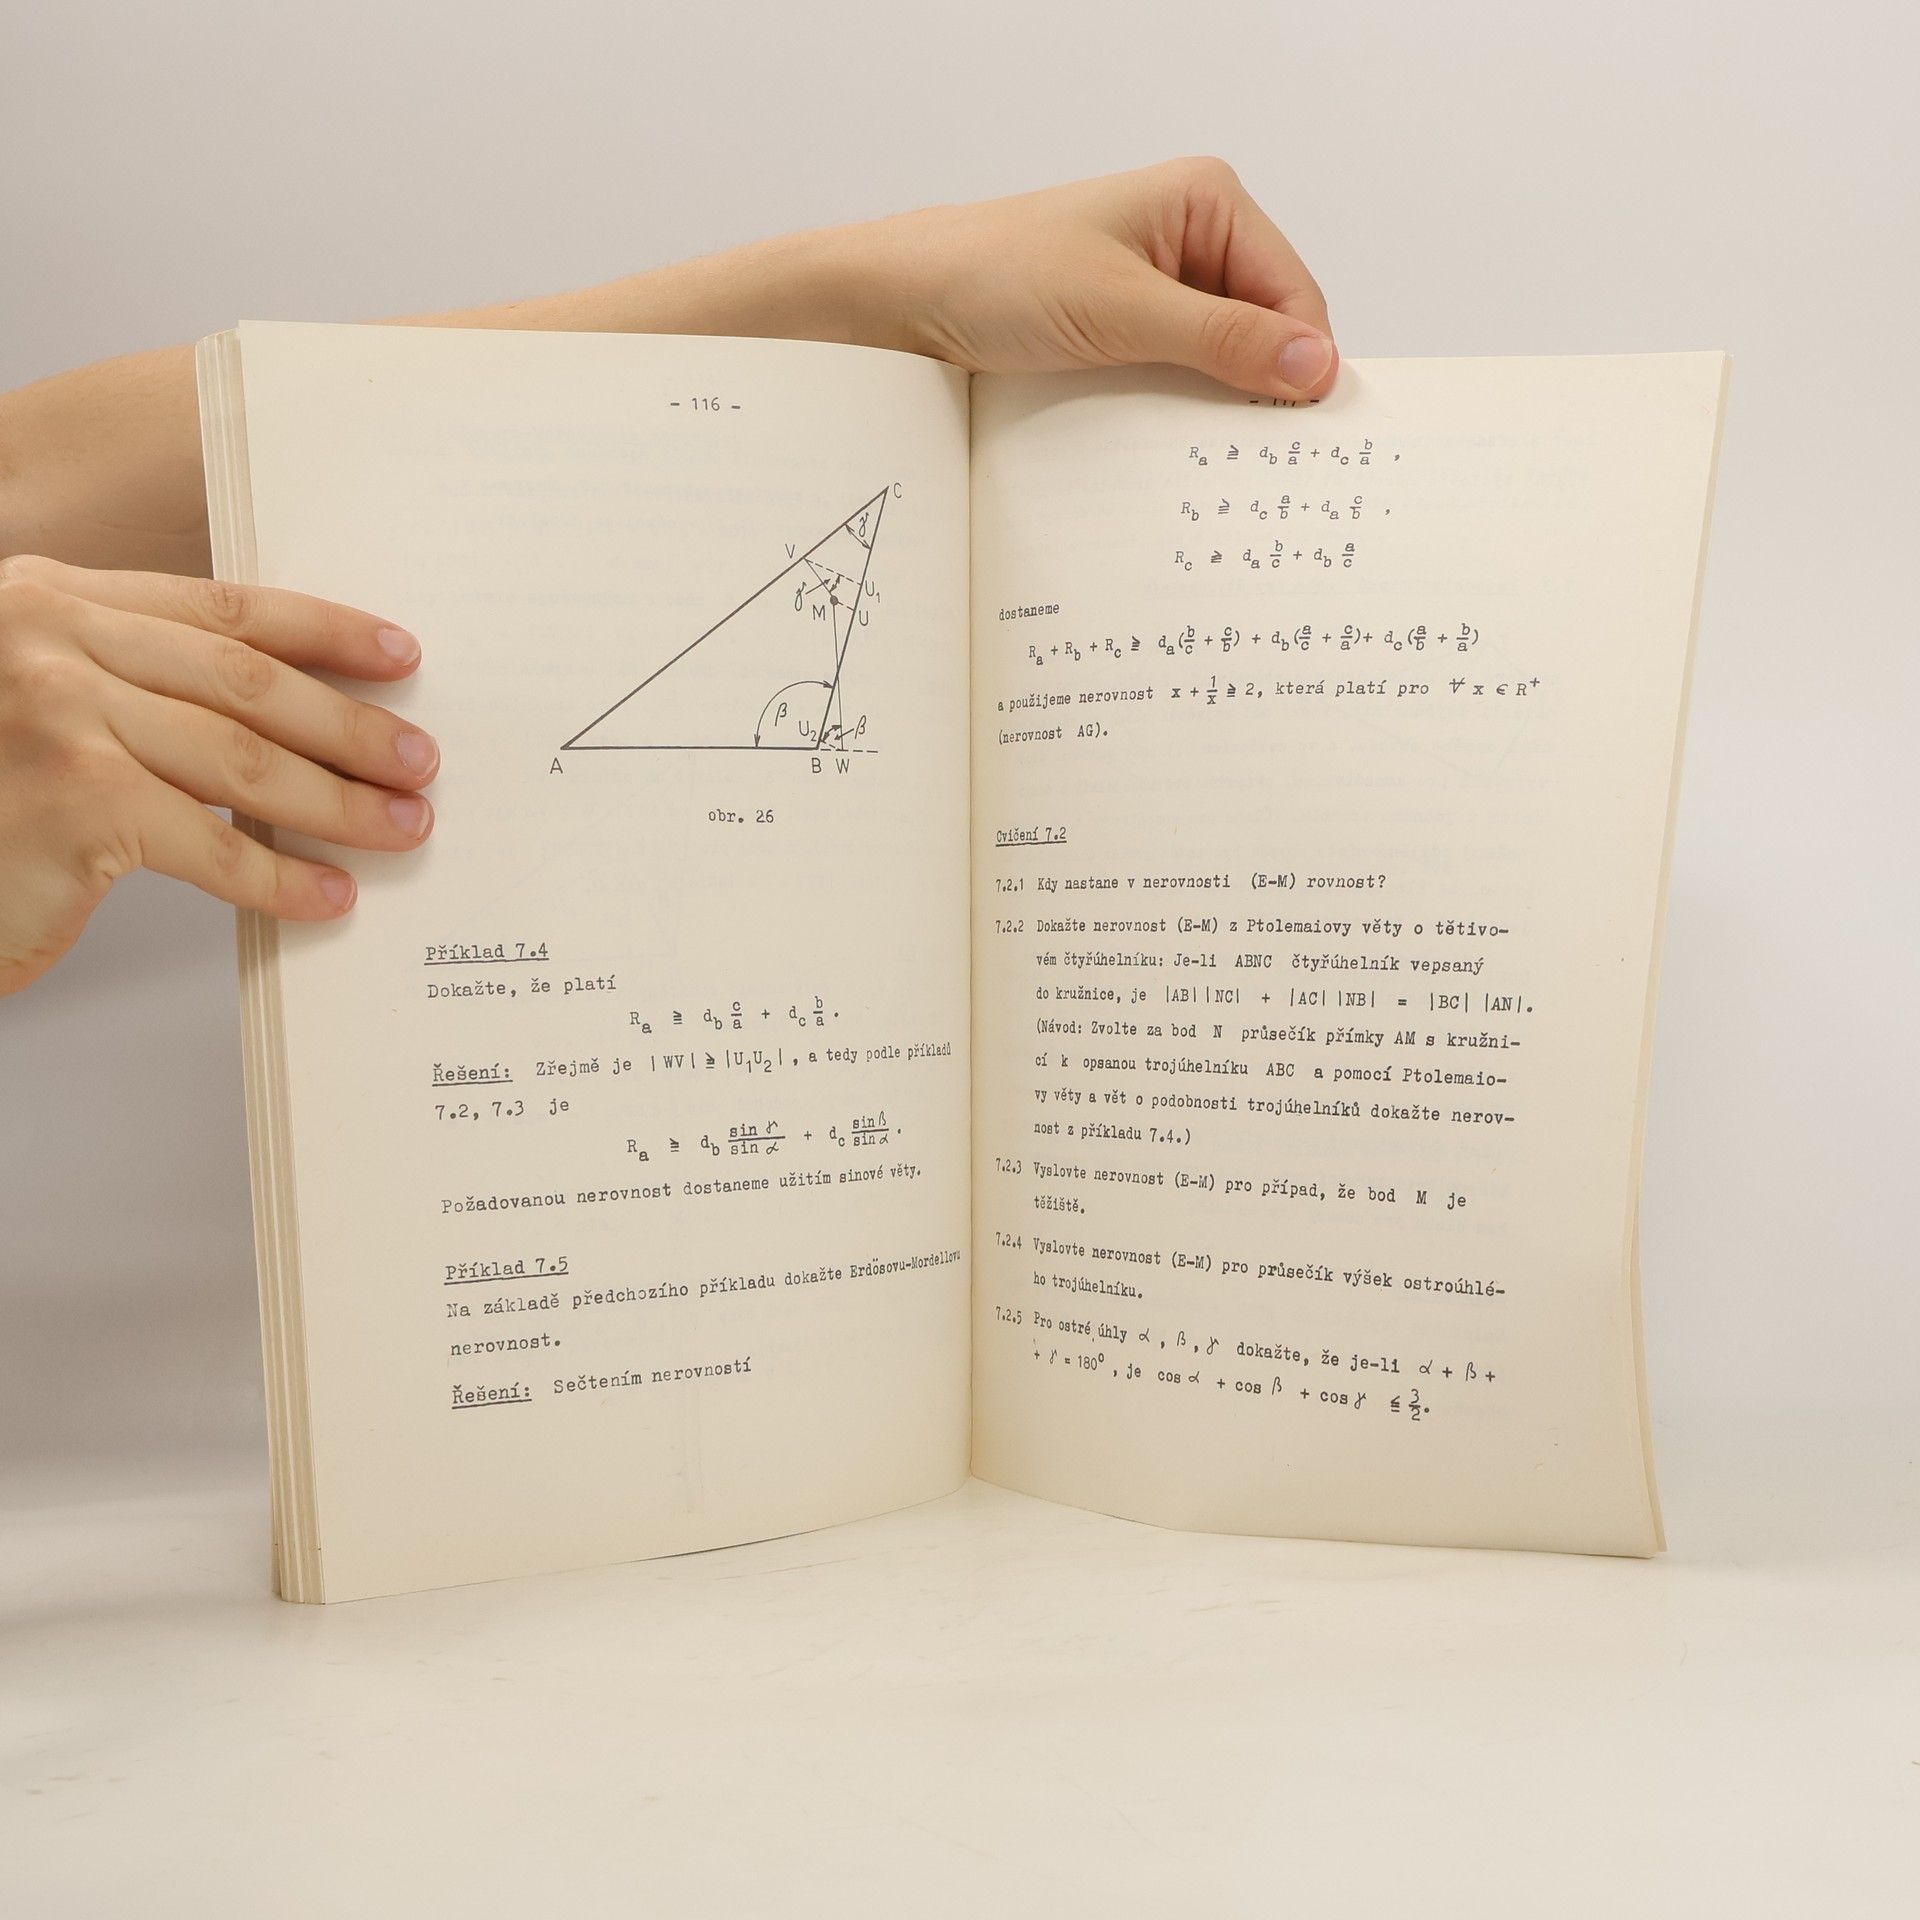 - 116 -
C
γ
V
U₁
γ
M
U
β
U₂
β
A
B W
obr. 26
Příklad 7.4
Dokažte, že platí
Rₐ ≧ d_b c/a + d_c b/a .
Řešení: Zřejmě je |WV| ≧ |U₁U₂|, a tedy podle příkladů
7.2, 7.3 je
Rₐ ≧ d_b sin γ/sin α + d_c sin β/sin α .
Požadovanou nerovnost dostaneme užitím sinové věty.
Příklad 7.5
Na základě předchozího příkladu dokažte Erdösovu-Mordellovu
nerovnost.
Řešení: Sečtením nerovností
Rₐ ≧ d_b c/a + d_c b/a ,
R_b ≧ d_c a/b + dₐ c/b ,
R_c ≧ dₐ b/c + d_b a/c
dostaneme
Rₐ + R_b + R_c ≧ dₐ(b/c + c/b) + d_b(a/c + c/a)+ d_c(a/b + b/a)
a použijeme nerovnost x + 1/x ≧ 2, která platí pro ∀ x ∈ R⁺
(nerovnost AG).
Cvičení 7.2
7.2.1 Kdy nastane v nerovnosti (E-M) rovnost?
7.2.2 Dokažte nerovnost (E-M) z Ptolemaiovy věty o tětivo-
vém čtyřúhelníku: Je-li ABNC čtyřúhelník vepsaný
do kružnice, je |AB| |NC| + |AC| |NB| = |BC| |AN|.
(Návod: Zvolte za bod N průsečík přímky AM s kružni-
cí k opsanou trojúhelníku ABC a pomocí Ptolemaio-
vy věty a vět o podobnosti trojúhelníků dokažte nerov-
nost z příkladu 7.4.)
7.2.3 Vyslovte nerovnost (E-M) pro případ, že bod M je
těžiště.
7.2.4 Vyslovte nerovnost (E-M) pro průsečík výšek ostroúhlé-
ho trojúhelníku.
7.2.5 Pro ostré úhly α, β, γ dokažte, že je-li α + β +
+ γ = 180°, je cos α + cos β + cos γ ≦ 3/2.